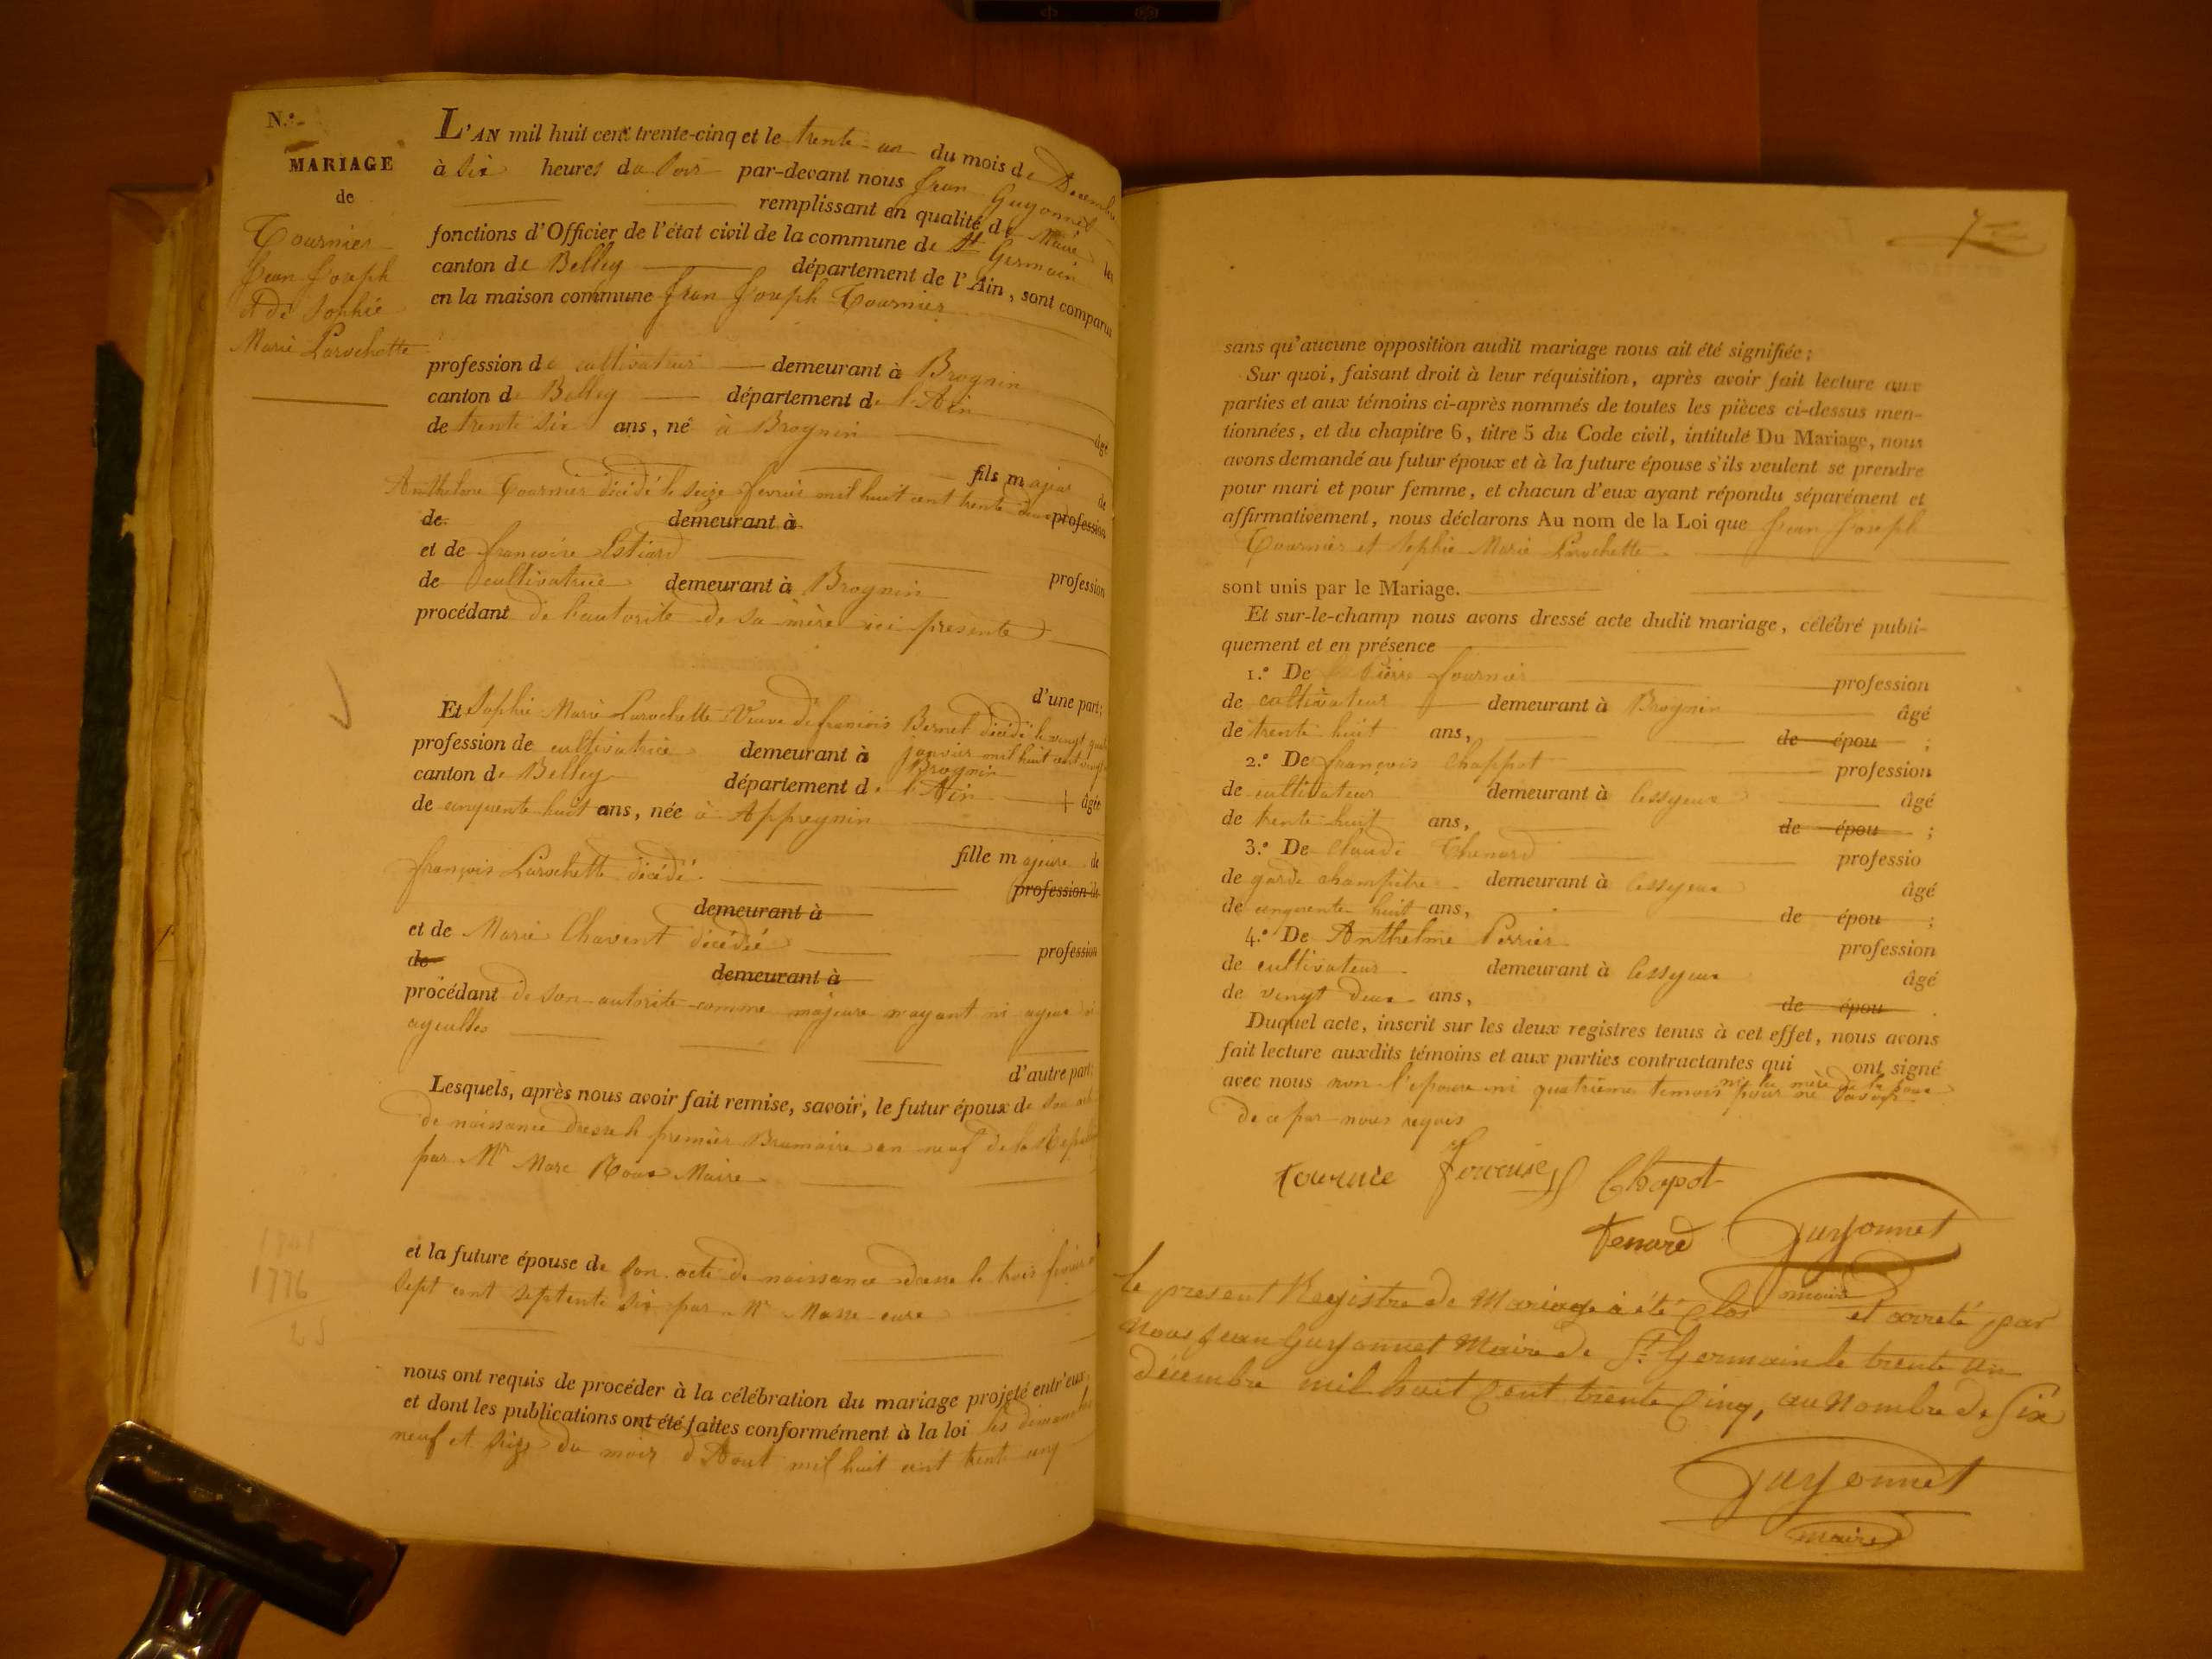 N.°
MARIAGE
de
Tournier
Jean Joseph
& de Sophie
Marie Larochette
L'AN mil huit cent trente-cinq et le trente-un du mois de Décembre
à six heures du soir par-devant nous Jean Guyonnet
remplissant en qualité de Maire les
fonctions d'Officier de l'état civil de la commune de St Germain
canton de Belley département de l'Ain, sont comparus
en la maison commune Jean Joseph Tournier
profession de cultivateur demeurant à Brognin
canton de Belley département de l'Ain
âgé
de trente six ans, né à Brognin
fils majeur de
Anthelme Tournier décédé le seize fevrier mil huit cent trente deux profession
de demeurant à
et de françoise
profession
de cultivatrice demeurant à Brognin
procédant de l'autorité de sa mère ici présente
d'une part;
Et Sophie Marie Larochette Veuve de françois Bernet décédé le vingt
janvier mil huit cent vingt
profession de cultivatrice demeurant à Brognin
canton de Belley département de l'Ain + âgée
de cinquante huit ans, née à Appregnin
fille majeure de
françois Larochette décédé profession de
demeurant à
et de Marie Chavent décédée profession
de demeurant à
procédant de son autorité comme majeure n'ayant ni ayeux ni
ayeulles
d'autre part;
Lesquels, après nous avoir fait remise, savoir, le futur époux de son acte
de naissance dressé le premier Brumaire an neuf de la République
par Mr Marc Roux Maire
1801
1776
25
et la future épouse de son acte de naissance dressé le trois fevrier
sept cent septente six par Mr curé
nous ont requis de procéder à la célébration du mariage projeté entr'eux,
et dont les publications ont été faites conformément à la loi les dimanches
neuf et seize du mois d'Aout mil huit cent trente cinq
7
sans qu'aucune opposition audit mariage nous ait été signifiée;
Sur quoi, faisant droit à leur réquisition, après avoir fait lecture aux
parties et aux témoins ci-après nommés de toutes les pièces ci-dessus men-
tionnées, et du chapitre 6, titre 5 du Code civil, intitulé Du Mariage, nous
avons demandé au futur époux et à la future épouse s'ils veulent se prendre
pour mari et pour femme, et chacun d'eux ayant répondu séparément et
affirmativement, nous déclarons Au nom de la Loi que Jean Joseph
Tournier et Sophie Marie Larochette
sont unis par le Mariage.
Et sur-le-champ nous avons dressé acte dudit mariage, célébré publi-
quement et en présence
1.° De Pierre Tournier profession
de cultivateur demeurant à Brognin âgé
de trente huit ans, de épou ;
2.° De françois Chappot profession
de cultivateur demeurant à Cessyeux âgé
de trente huit ans, de épou ;
3.° De Claude Thenard professio
de garde champêtre demeurant à Cessyeux âgé
de cinquente huit ans, de épou ;
4.° De Anthelme Perrier profession
de cultivateur demeurant à Cessyeux âgé
de vingt deux ans, de épou .
Duquel acte, inscrit sur les deux registres tenus à cet effet, nous avons
fait lecture auxdits témoins et aux parties contractantes qui ont signé
ni la mère de
avec nous non l'épouse ni quatrième temoin pour ne savoir
de ce par nous requis
Chapot
Tenard Guyonnet
maire
le present Registre de Mariage a été Clos et arreté par
Nous Jean Guyonnet Maire de St Germain le trente un
décembre mil huit Cent trente Cinq, au Nombre de Six
Guyonnet
maire